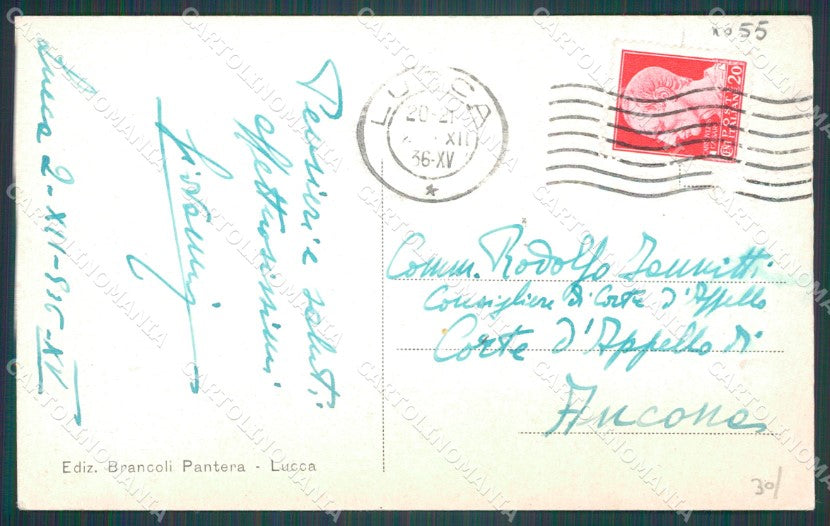 Lucca 2-XII-936-XV
Pensieri e saluti
affettuosissimi
LUCCA
20-21
XII
36-XV
POSTE
ITALIANE
20
55
Comm. Rodolfo Iannitti
Consigliere di Corte d'Appello
Corte d'Appello di
Ancona
Ediz. Brancoli Pantera - Lucca
30/
CARTOLINOMANIA